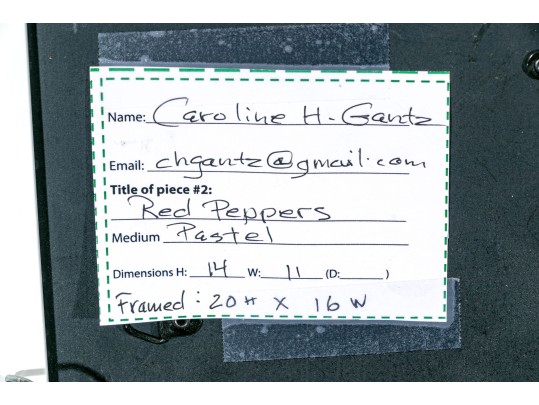 Name: Caroline H. Gantz
Email: chgantz@gmail.com
Title of piece #2:
Red Peppers
Medium Pastel
Dimensions H: 14 W: 11 (D: )
Framed: 20 H X 16 W